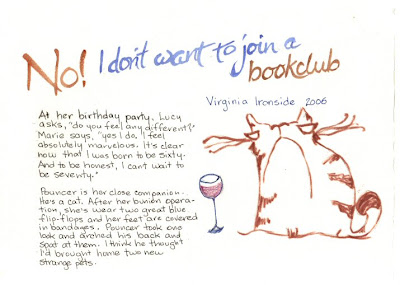 No! I don't want to join a
bookclub
Virginia Ironside 2006
At her birthday party, Lucy
asks, "do you feel any different?"
Marie says, "yes I do, I feel
absolutely marvelous. It's clear
now that I was born to be sixty.
And to be honest, I cant wait to
be seventy."
Pouncer is her close companion.
He's a cat. After her bunion opera-
tion, she's wear two great blue
flip-flops and her feet are covered
in bandages. Pouncer took one
look and arched his back and
spat at them. I think he thought
I'd brought home two new
strange pets.